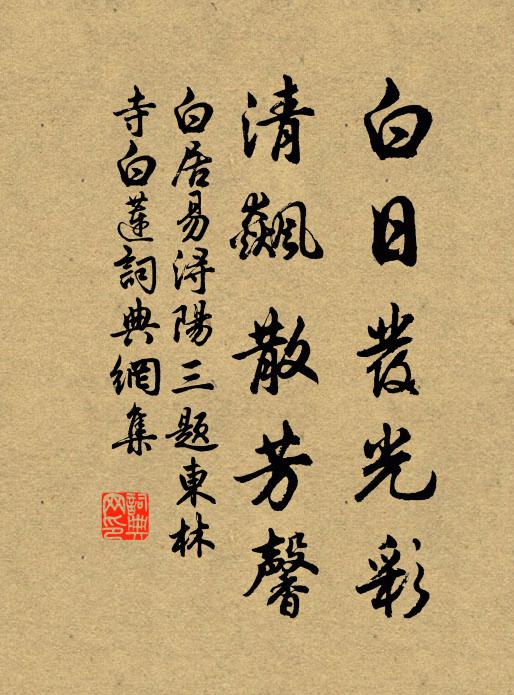 白日發光彩
清飆散芳馨
白居易潯陽三題東林
寺白蓮詞典網集
詞典
网印